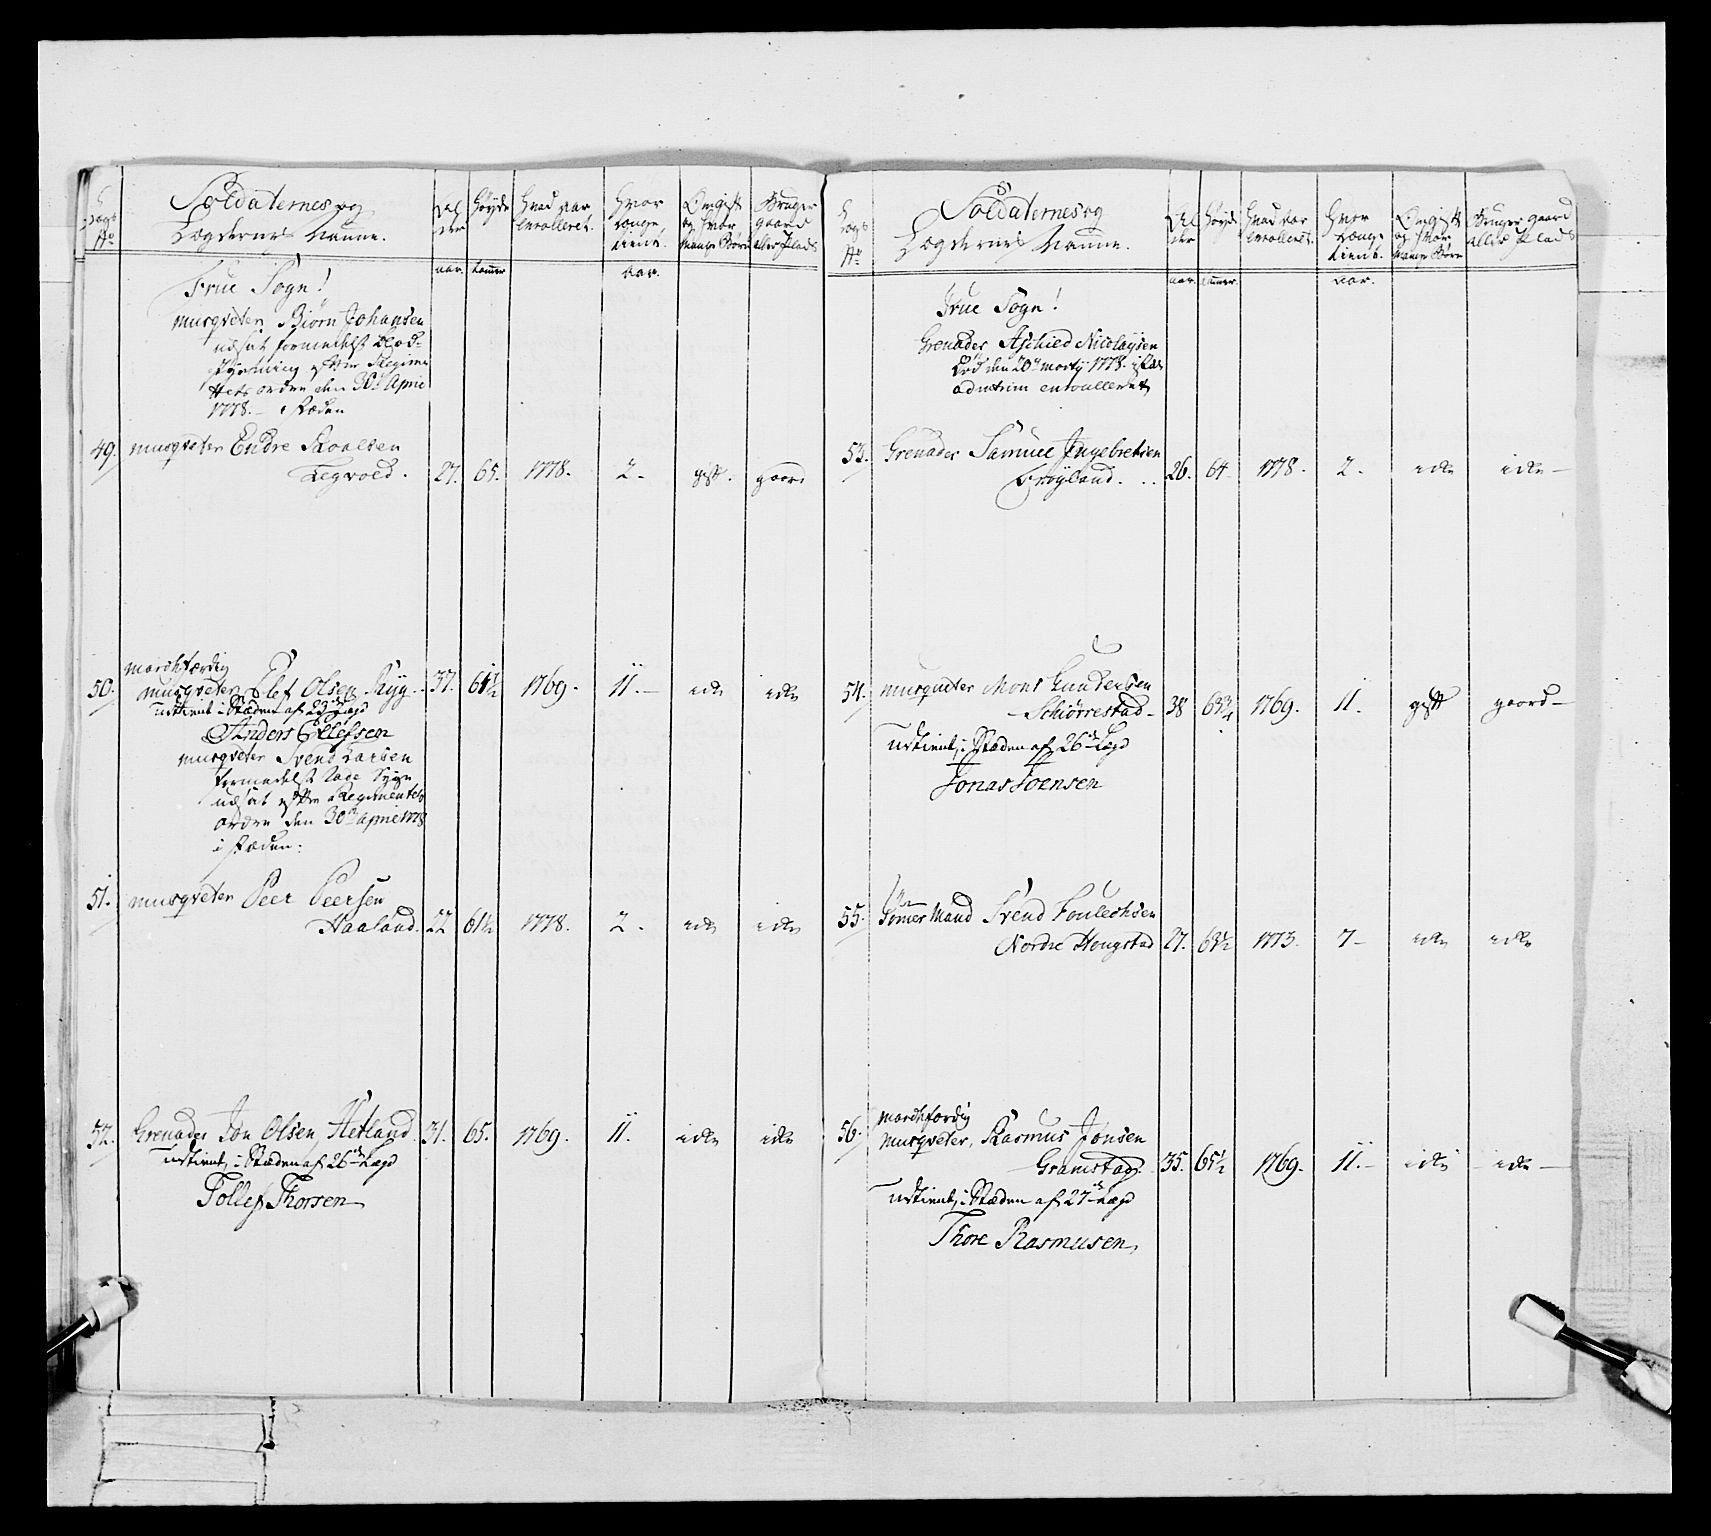 Lægds No
Soldaternes og
Lægdernes Nafne.
Alder
Høyde
Hvad aar Enrolleret.
Hvor længe tient.
Om gift og hvor mange Børn
Bruger gaard eller Plads
aar. tommer aar.
Frue Sogn!
Musqveter Biörn Johansen
udsat formedelst Blod-
styrtning efter Regime
tets ordre den 30te April
1778. - Stæden
49. musqveter Endre Roalsen
Tegvold. 27. 65. 1778. 2. gift. gaard
marchfærdig
50. musqveter Elef Olsen Ryg. 37. 61 1/2 1769. 11. ikke ikke
udtient, i Stæden af 23de Lægd
Anders Ellefsen
musqveter Svend Larsen
formedelst Syge
udsat efter Regimentets
ordre den 30te April 1778
i stæden:
51. musqveter Peer Peersen
Haaland. 22 61 1/2 1778. 2. ikke ikke
52. Grenader Jon Olsen Hetland. 31. 65. 1769. 11. ikke ikke
udtient, i Stæden af 26de Lægd
Tollef Thorsen
Lægds No
Soldaternes og
Lægdernes Nafne.
Alder
Høyde
Hvad aar Enrolleret.
Hvor længe tient.
Om gift og hvor mange Børn
Bruger gaard eller Plads
aar. tommer. aar.
Frue Sogn!
Grenader Aschied Nicolaysen
Död den 20de Martij 1778. i Stæ
enroulleret
53. Grenader Samuel Ingebretsen
Fröyland. 26. 64 1778. 2. ikke ikke
54. musqueter Mons Gundersen
Schiörrestad 38 63 3/4 1769. 11. gift gaard
udtient, i Stæden af 26de Lægd
Jonas Joensen
55. Tömer Mand Svend Foulechsen
Nordre Hougstad 27. 63 1/2 1773. 7 ikke ikke
marchfærdig
56. Musqveter, Rasmus Jonsen
Gramstad. 35. 65 1/2 1769. 11. ikke ikke
udtient, i Stæden af 27de Lægd
Thore Rasmusen